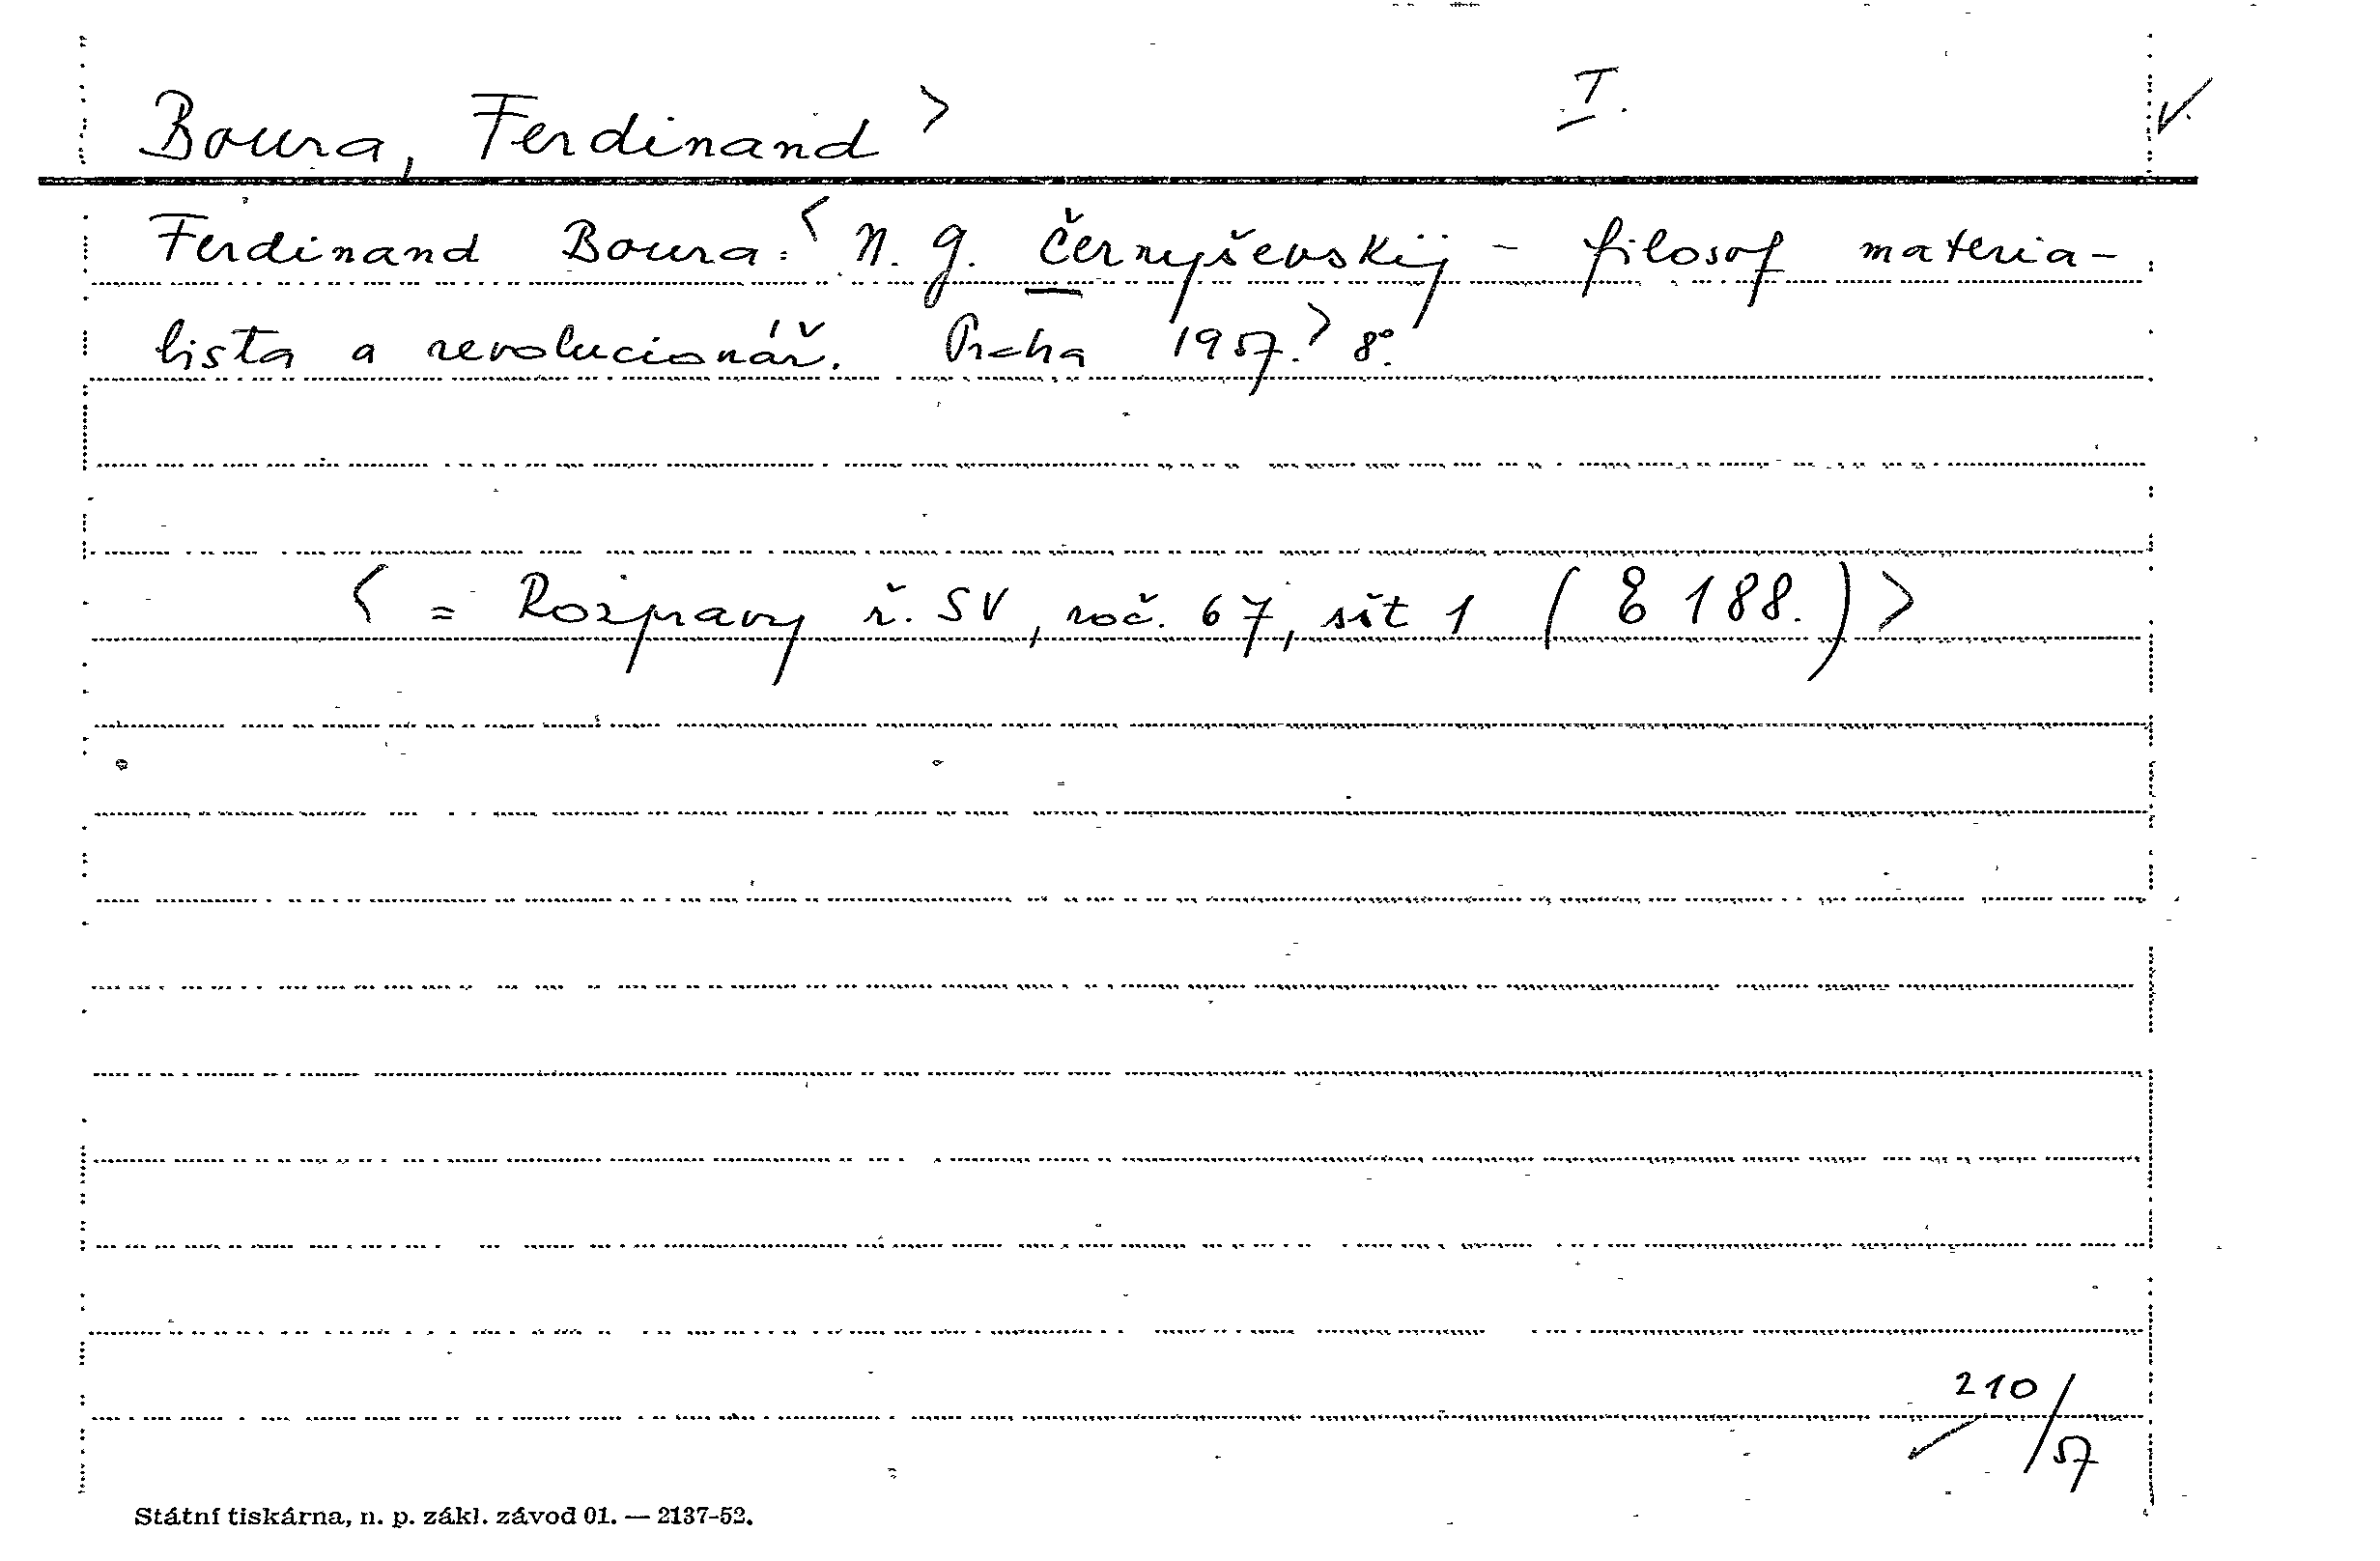 Boura, Ferdinand > I. V.
Ferdinand Boura: < N. G. Černyševskij – filosof materia-
lista a revolucionář. Praha 1957. > 8°.
< = Rozpravy ř. SV, roč. 67, sít 1 ( E 188. ) >
210/57
Státní tiskárna, n. p. zákl. závod 01. — 2137-52.